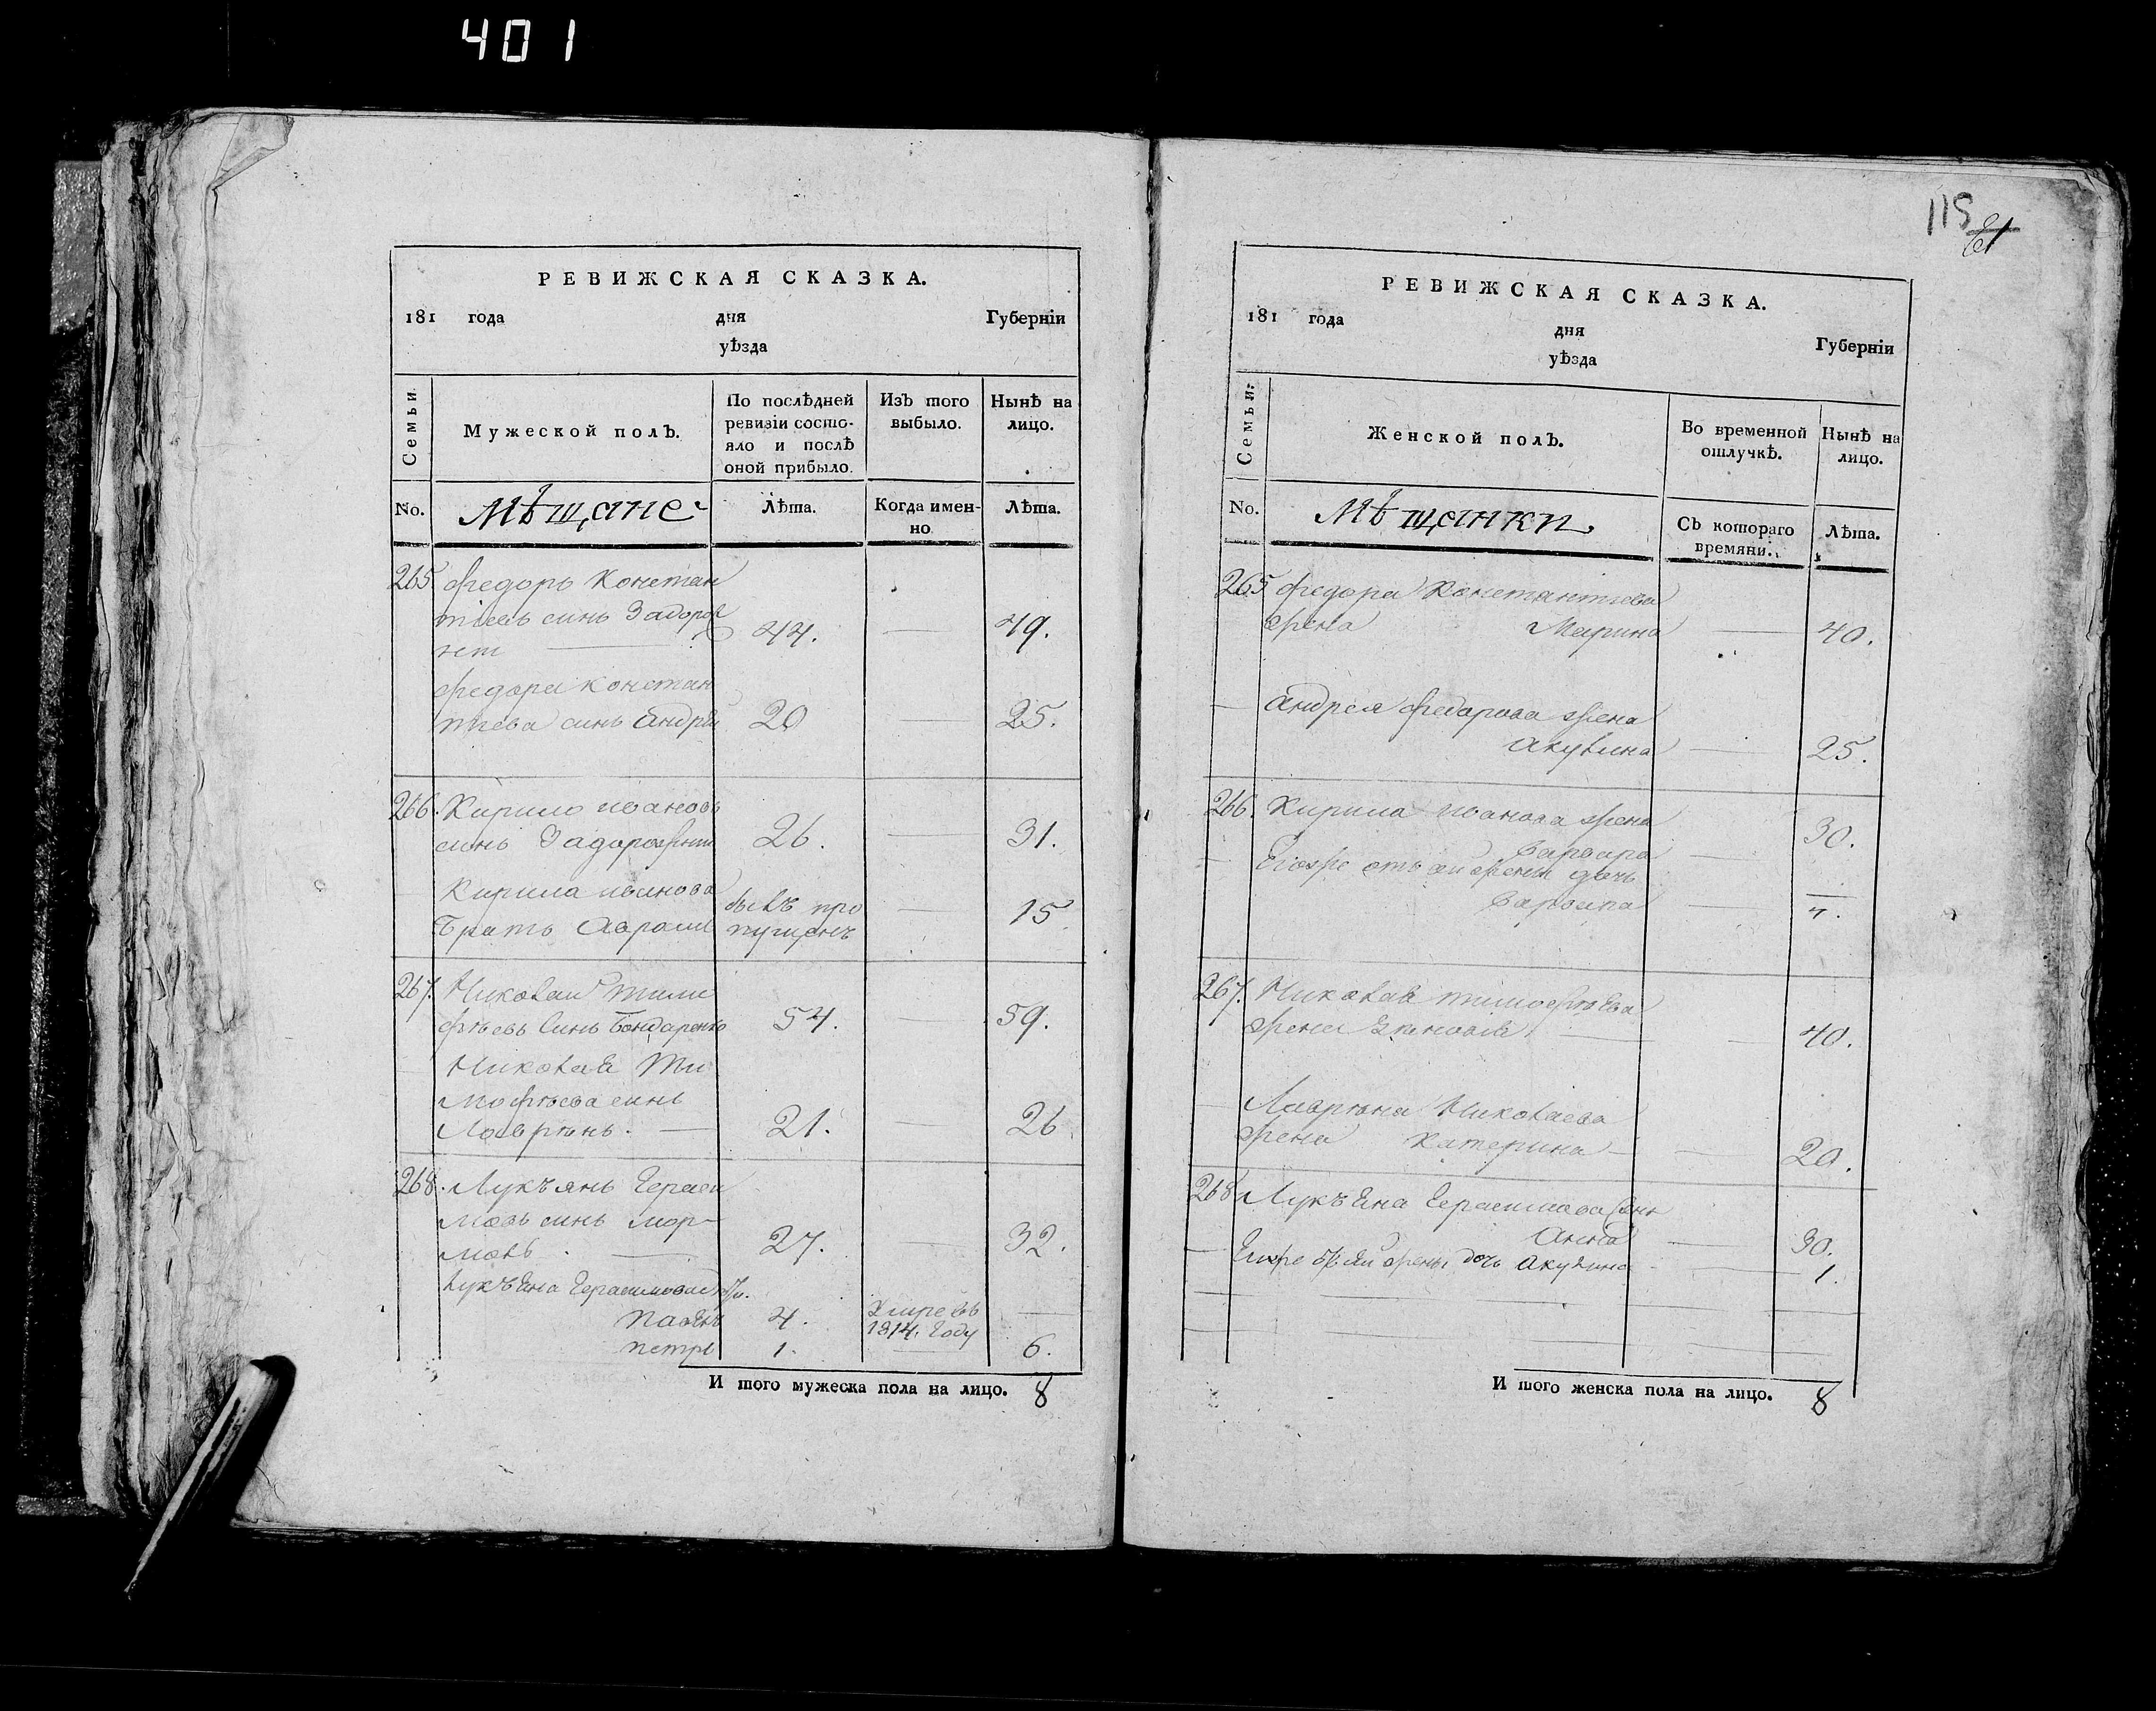 401
РЕВИЖСКАЯ СКАЗКА.
181 года дня Губерніи
уѣзда
Семьи.
Мужеской полъ.
По послѣдней ревизіи состояло и послѣ оной прибыло.
Изъ того выбыло.
Нынѣ на лицо.
No. Мѣщане Лѣта. Когда именно Лѣта.
265 Федоръ Констан
тіевъ синъ Задорож
44. 49.
Федора Констан
тіева синъ Андрей 20 25.
266. Кирило Ивановъ
синъ Задорожній 26. 31.
Кирила Иванова
братъ Аврамъ былъ пропущенъ 15
267. Николай Тимо
фѣевъ Синъ Бондаренко 54. 59.
Николая Ти
мофѣева синъ
Лаврѣнъ. 21. 26
268. Лукъянъ Гераси
мовъ синъ
27. 32.
Лукъяна Герасимова
Павелъ 4. Умре въ 1814. Году
Петръ 1. 6.
И того мужеска пола на лицо. 8
115
61
РЕВИЖСКАЯ СКАЗКА.
181 года дня Губерніи
уѣзда
Семьи.
Женской полъ.
Во временной отлучкѣ.
Нынѣ на лицо.
No. Мѣщанки. Съ котораго времяни. Лѣта.
265 Федора Константіева
жена Марина 40.
Андрея Федорова жена
Акулина 25.
266. Кирила Иванова жена
Варвара 30.
Егожъ отъ ей жены дочь
Варвара 4.
267. Николая Тимофѣева
жена 40.
Лаврѣна Николаева
жена Катерина 20.
268 Лукъяна Герасимова жена
Анна 30.
Егоже жены дочь Акулина 1.
И того женска пола на лицо. 8